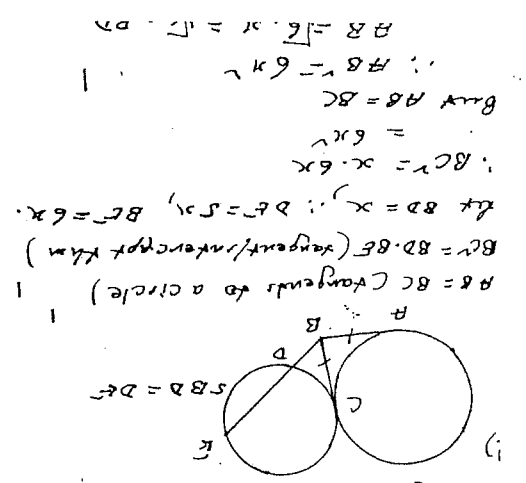 i)
A
B
C
D
E
5BD = DE
AB = BC (tangents to a circle) 1
BC² = BD.BE (tangent/intercept thm) 1
let BD = x, ∴ DE = 5x, BE = 6x.
∴ BC² = x.6x
= 6x²
But AB = BC
∴ AB² = 6x² 1
AB = √6.x = √6.BD